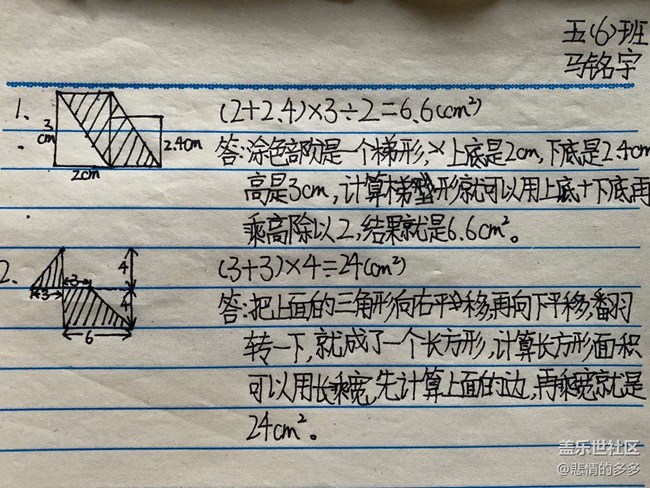 五(6)班
马铭宇
1、 (2+2.4)×3÷2=6.6(cm²)
3cm 2cm 2.4cm
答:涂色部分是一个梯形,上底是2cm,下底是2.4cm
高是3cm,计算梯形就可以用上底+下底再
乘高除以2,结果就是6.6cm²。
2、 (3+3)×4=24(cm²)
4 3 3 4 6
答:把上面的三角形向右平移,再向下平移,翻
转一下,就成了一个长方形,计算长方形面积
可以用长乘宽,先计算上面的边,再乘宽就是
24cm²。
盖乐世社区
@悲情的多多